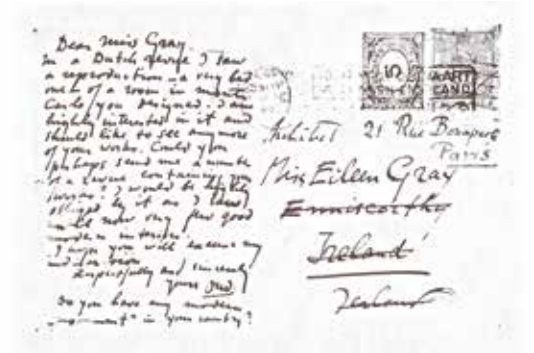 Dear Miss Gray.
In a Dutch review I saw
a reproduction - a very bad
one of a room in Monte
Carlo you designed. I am
highly interested in it and
should like to see any more
of your works. Could you
perhaps send me a number
of a revue containing your
works? I would be highly
obliged by it as I know
until now very few good
modern interior.
I hope you will excuse my
Respectfully and sincerely
yours
Do you have any modern
"movement" in your country?
5
Architect 21 Rue Bonaparte
Paris
Miss Eileen Gray
Enniscorthy
Ireland